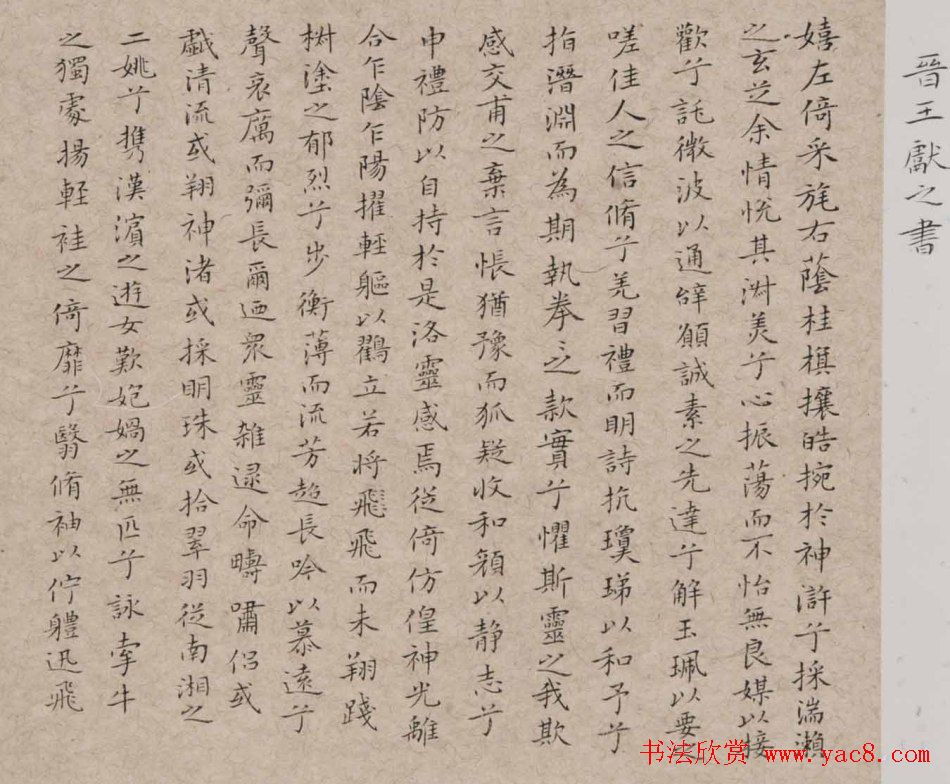 晉王獻之書
嬉左倚采旄右蔭桂旗攘皓捥於神滸兮採湍瀨
之玄芝余情悅其淑美兮心振蕩而不怡無良媒以接
歡兮託微波以通辭願誠素之先達兮解玉珮以要之
嗟佳人之信脩兮羌習禮而明詩抗瓊珶以和予兮
指潛淵而為期執拳〻之款實兮懼斯靈之我欺
感交甫之棄言悵猶豫而狐疑收和顏以靜志兮
申禮防以自持於是洛靈感焉徙倚仿偟神光離
合乍陰乍陽擢輕軀以鸖立若將飛飛而未翔踐
椒塗之郁烈兮步衡薄而流芳超長吟以慕遠兮
聲哀厲而彌長爾迺眾靈雜遝命疇嘯侶或
戲清流或翔神渚或採明珠或拾翠羽從南湘之
二姚兮攜漢濱之遊女歎㚿媧之無匹兮詠牽牛
之獨處揚輕袿之倚靡兮翳脩袖以佇體迅飛
书法欣赏 www.yac8.com